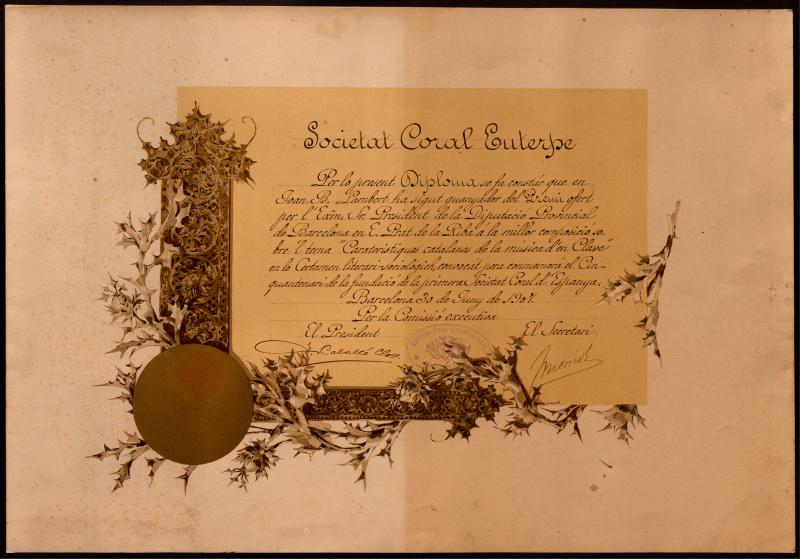 Societat Coral Euterpe
Per lo present Diploma se fa constár que en
Joan B. Lambert ha sigut guanyador del Premi ofert
per l'Exím Sr. President de la Diputació Provincial
de Barcelona en E. Prat de la Riba a la millor composició so
bre'l tema "Carateristiques catalanes de la música d'en Clavé"
en lo Certamen literari-sociológich, convocat para conmemorá el Cin-
quantenari de la fundació de la primera Societat Coral d'Espanya.
Barcelona 30 de Juny de 1907.
Per la Comissió executiva
El President El Secretari